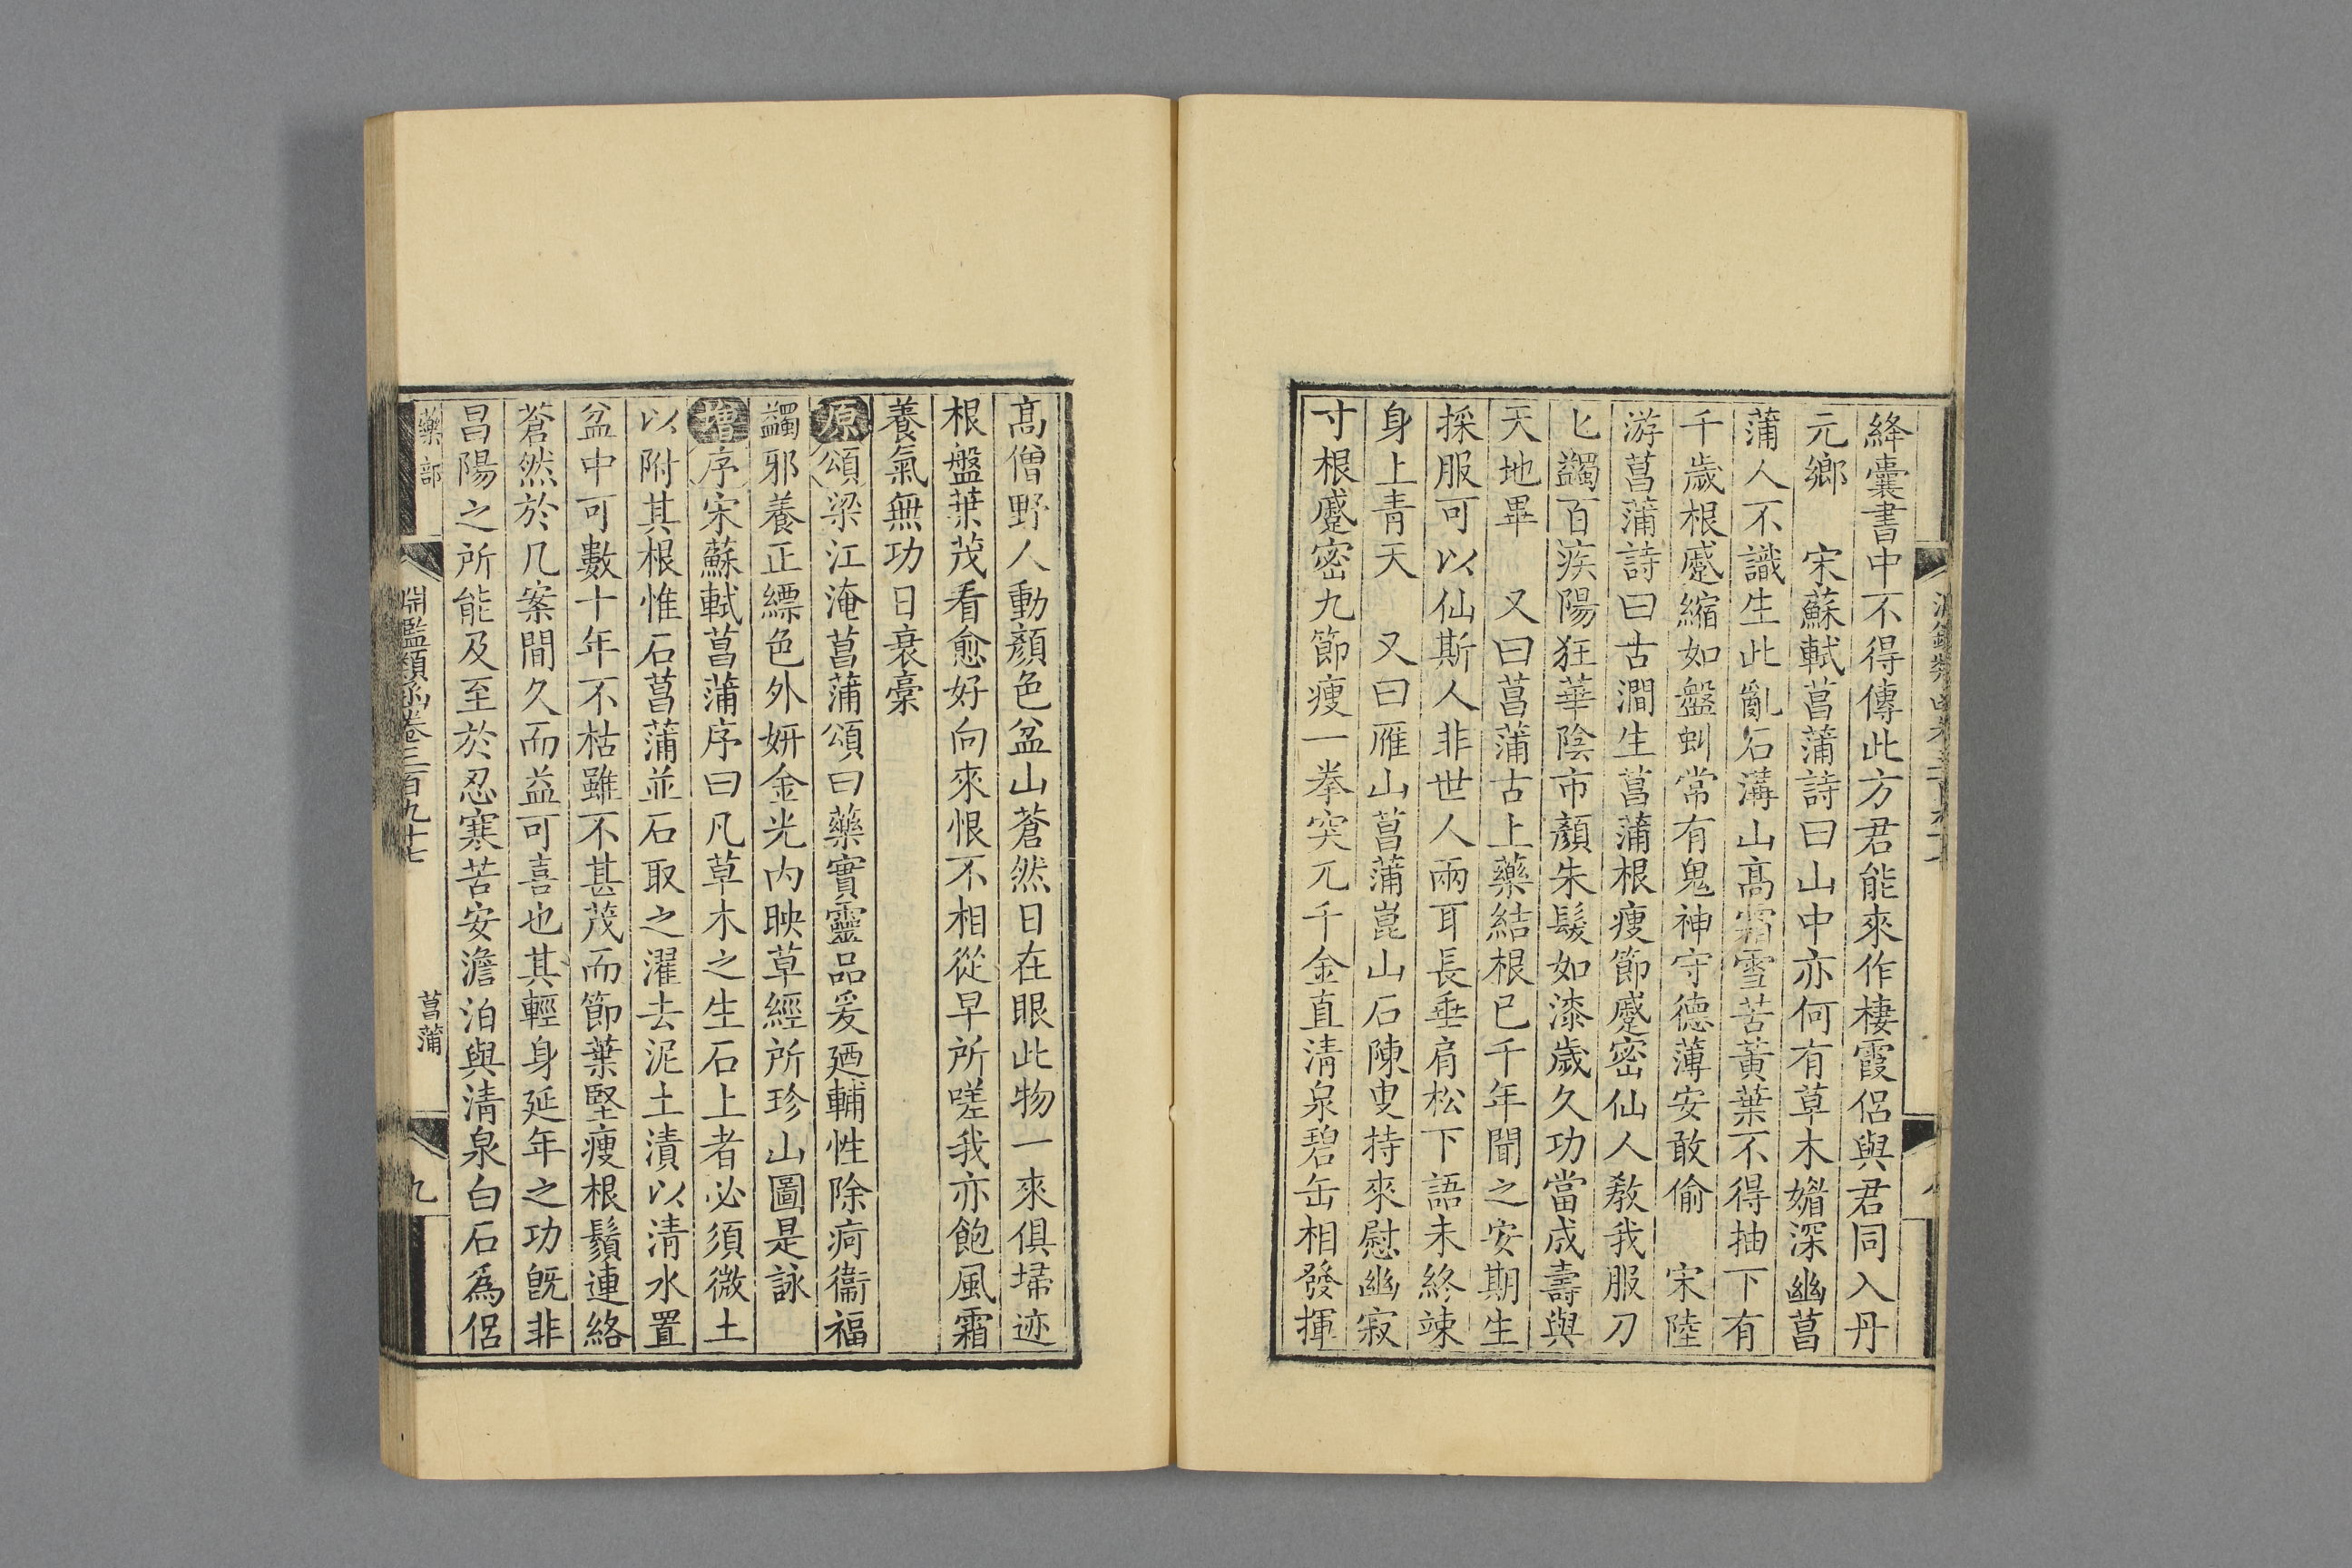 絳囊書中不得傳此方君能來作棲霞侣與君同入丹
元鄉　宋蘇軾菖蒲詩曰山中亦何有草木媚深幽菖
蒲人不識生此亂石溝山高霜雪苦黃葉不得抽下有
千歲根蹙縮如盤虯常有鬼神守德薄安敢偷　宋陸
游菖蒲詩曰古澗生菖蒲根瘦節蹙密仙人教我服刀
匕蠲百疾陽狂華陰市顏朱髮如漆歲久功當成壽與
天地畢　又曰菖蒲古上藥結根已千年聞之安期生
採服可以仙斯人非世人兩耳長垂肩松下語未終竦
身上青天　又曰雁山菖蒲崑山石陳叟持來慰幽寂
寸根蹙密九節瘦一拳突兀千金直清泉碧缶相發揮
高僧野人動顏色盆山蒼然日在眼此物一來俱埽迹
根盤葉茂看愈好向來恨不相從早所嗟我亦飽風霜
養氣無功日衰槀
原頌梁江淹菖蒲頌曰藥實靈品爰廼輔性除疴衞福
蠲邪養正縹色外妍金光内映草經所珍山圖是詠
增序宋蘇軾菖蒲序曰凡草木之生石上者必須微土
以附其根惟石菖蒲並石取之濯去泥土漬以清水置
盆中可數十年不枯雖不甚茂而節葉堅瘦根鬚連絡
蒼然於几案間久而益可喜也其輕身延年之功旣非
昌陽之所能及至於忍寒苦安澹泊與清泉白石爲侣
藥部
淵鑑類函卷三百九十七
菖蒲
九